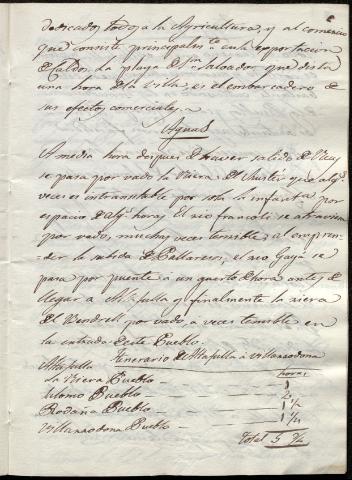 dedicados todos a la Agricultura, y al comercio
que consiste principalmte. en la exportacion
de Caldos. La playa de Sn. Salvador que dista
una hora de la Villa, es el embarcadero de
sus efectos comerciales.
Aguas
A media hora despues de haver salido de Reus
se pasa por vado la Riera que algs.
veces es intransitable por sola la
espacio de algs. horas. El rio francoli se atraviesa
por vado, muchas veces temible; al empren-
der la subida de Pallareses, el rio Gayá se
pasa por puente à un quarto de hora antes de
llegar a Altafulla y finalmente la riera
del Bendrell por vado, a veces temible en
la entrada de este Pueblo.
Itinerario de Altafulla à Villarrodona
Altafulla horas
La Riera Pueblo 1
Pueblo 2
Rodoña Pueblo 1/2
Villarrodona Pueblo 1 1/2
Total 5